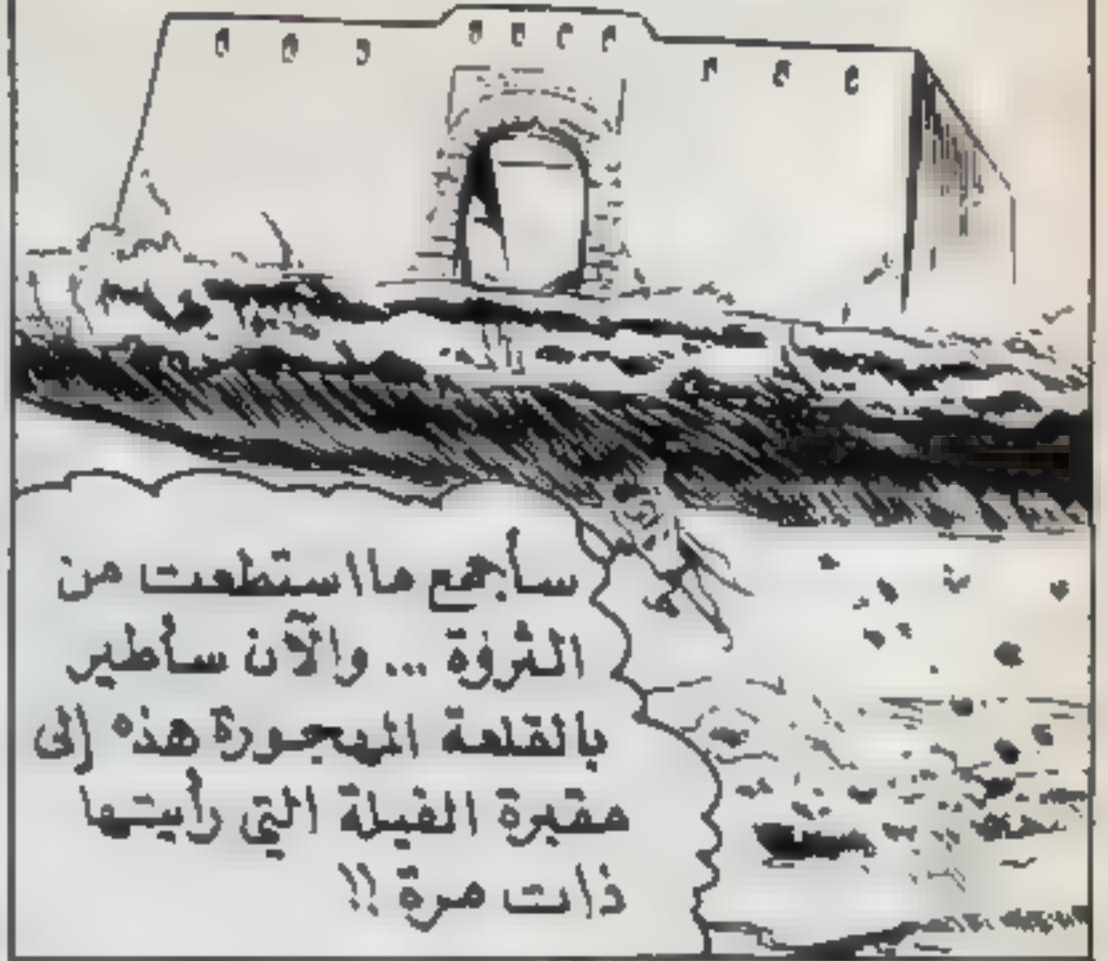 سأجمع ما استطعت من
الثروة ... والآن سأطير
بالقلعة المهجورة هذه إلى
مقبرة الفيلة التي رأيتها
ذات مرة !!